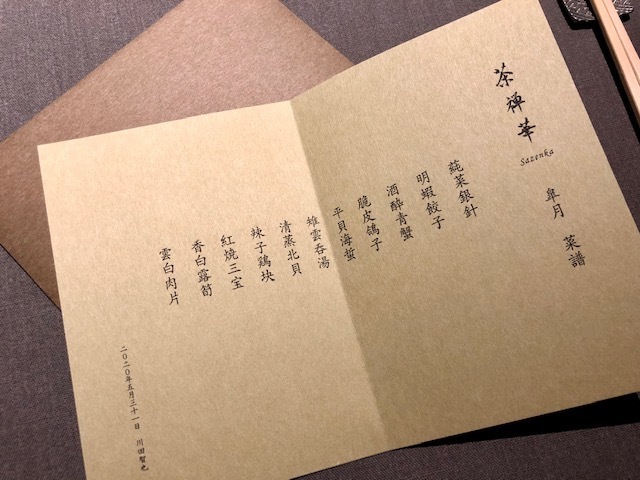 茶禅華
Sazenka
皐月 菜譜
蒓菜銀針
明蝦餃子
酒醉青蟹
脆皮鴿子
平貝海蜇
雉雲呑湯
清蒸北貝
辣子鶏块
紅燒三宝
香白露筍
雲白肉片
二〇二〇年五月三十一日 川田智也